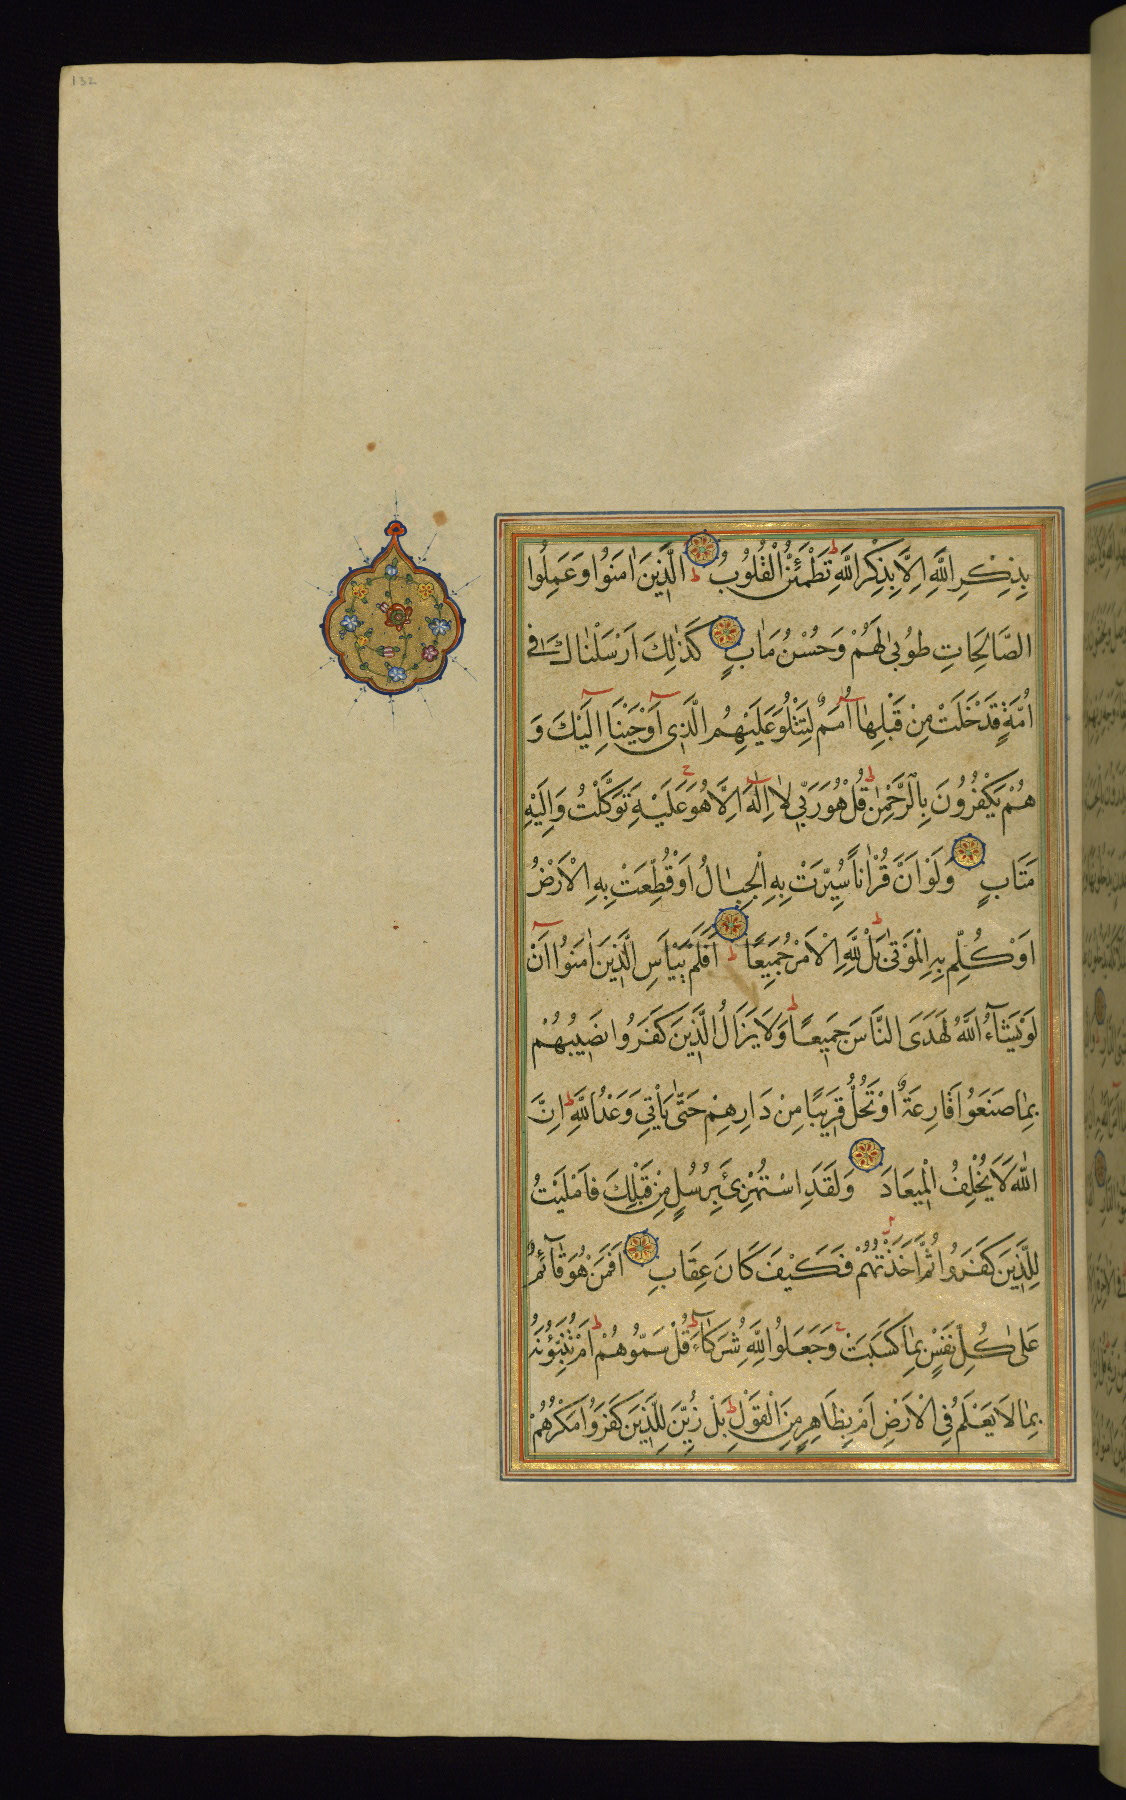 132
بِذِكْرِ اللَّهِ اَلَا بِذِكْرِ اللَّهِ تَطْمَئِنُّ الْقُلُوبُ الَّذِينَ اٰمَنُوا وَعَمِلُوا
الصَّالِحَاتِ طُوبٰى لَهُمْ وَحُسْنُ مَاٰبٍ كَذٰلِكَ اَرْسَلْنَاكَ فِي
اُمَّةٍ قَدْ خَلَتْ مِنْ قَبْلِهَا اُمَمٌ لِتَتْلُوَ عَلَيْهِمُ الَّذِي اَوْحَيْنَا اِلَيْكَ وَ
هُمْ يَكْفُرُونَ بِالرَّحْمٰنِ قُلْ هُوَ رَبِّي لَا اِلٰهَ اِلَّا هُوَ عَلَيْهِ تَوَكَّلْتُ وَاِلَيْهِ
مَتَابِ وَلَوْ اَنَّ قُرْاٰنًا سُيِّرَتْ بِهِ الْجِبَالُ اَوْ قُطِّعَتْ بِهِ الْاَرْضُ
اَوْ كُلِّمَ بِهِ الْمَوْتٰى بَلْ لِلَّهِ الْاَمْرُ جَمِيعًا اَفَلَمْ يَيْاَسِ الَّذِينَ اٰمَنُوا اَنْ
لَوْ يَشَاءُ اللَّهُ لَهَدَى النَّاسَ جَمِيعًا وَلَا يَزَالُ الَّذِينَ كَفَرُوا تُصِيبُهُمْ
بِمَا صَنَعُوا قَارِعَةٌ اَوْ تَحُلُّ قَرِيبًا مِنْ دَارِهِمْ حَتّٰى يَاْتِيَ وَعْدُ اللَّهِ اِنَّ
اللّٰهَ لَا يُخْلِفُ الْمِيعَادَ وَلَقَدِ اسْتُهْزِئَ بِرُسُلٍ مِنْ قَبْلِكَ فَاَمْلَيْتُ
لِلَّذِينَ كَفَرُوا ثُمَّ اَخَذْتُهُمْ فَكَيْفَ كَانَ عِقَابِ اَفَمَنْ هُوَ قَائِمٌ
عَلٰى كُلِّ نَفْسٍ بِمَا كَسَبَتْ وَجَعَلُوا لِلَّهِ شُرَكَاءَ قُلْ سَمُّوهُمْ اَمْ تُنَبِّؤُنَهُ
بِمَا لَا يَعْلَمُ فِي الْاَرْضِ اَمْ بِظَاهِرٍ مِنَ الْقَوْلِ بَلْ زُيِّنَ لِلَّذِينَ كَفَرُوا مَكْرُهُمْ